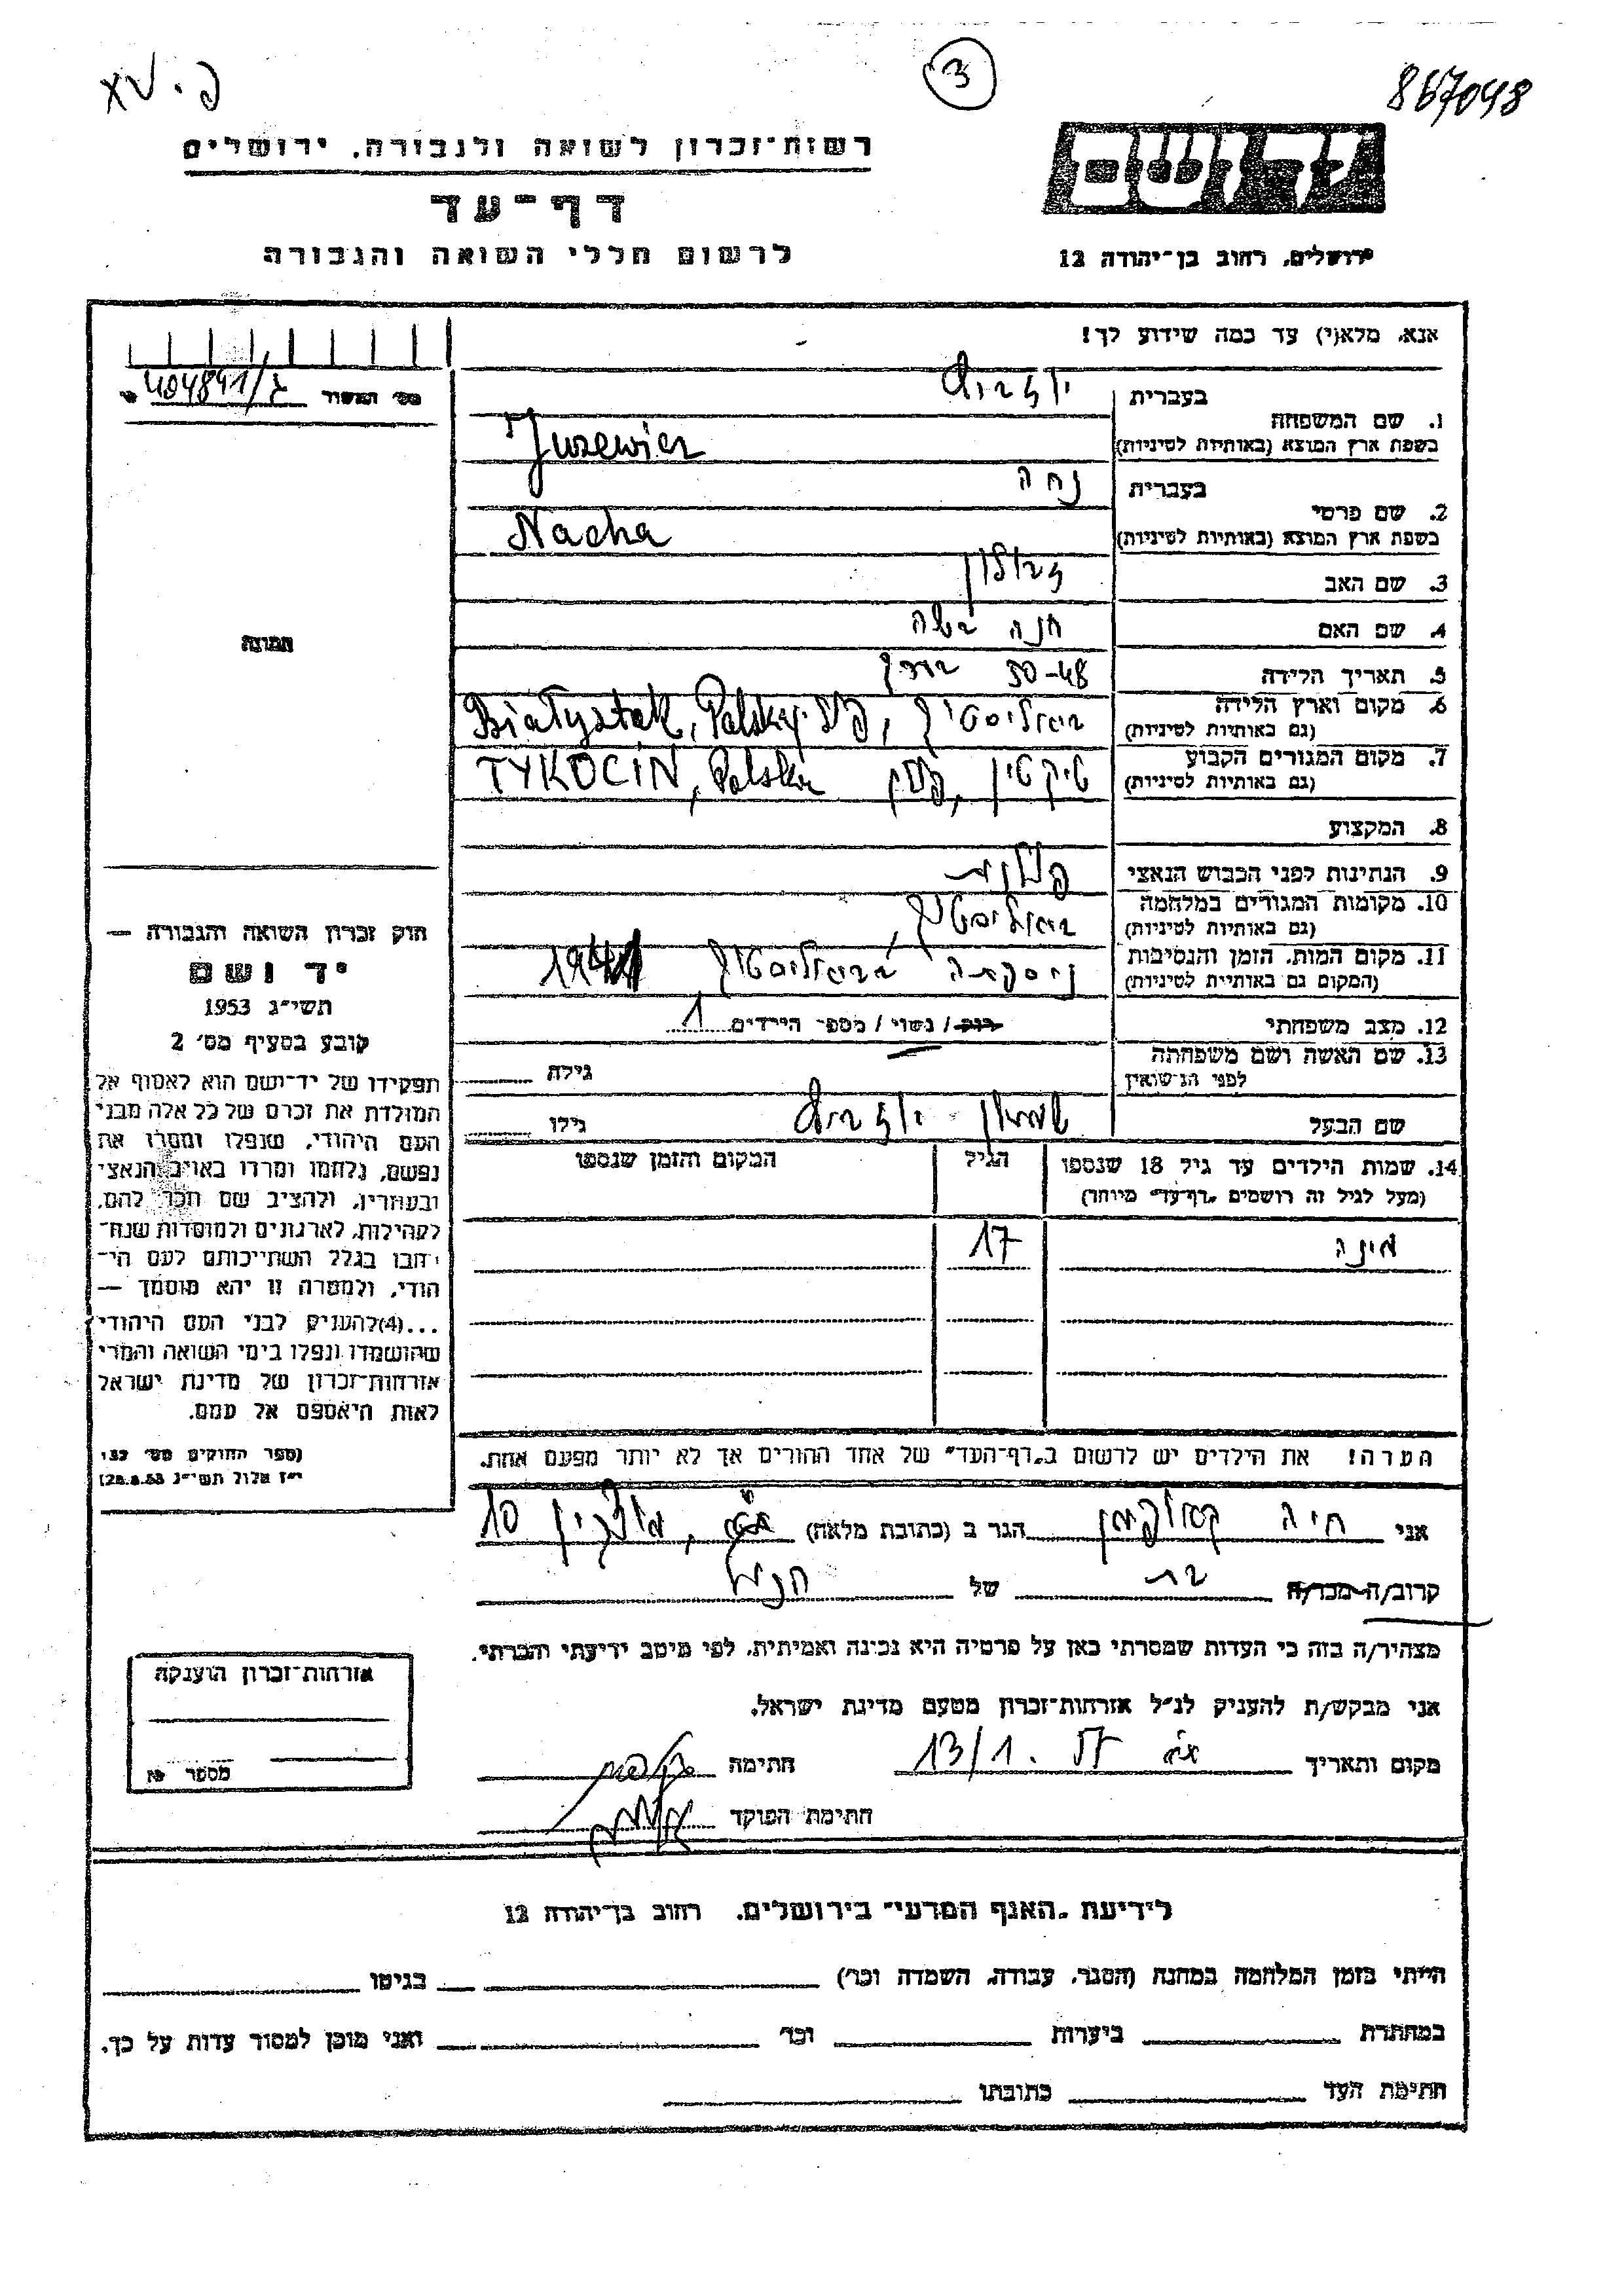 867048
3
יד ושם
ירושלים, רחוב בן־יהודה 12
רשות־זכרון לשואה ולגבורה, ירושלים
דף־עד
לרשום חללי השואה והגבורה
אנא, מלא(י) עד כמה שידוע לך!
1. שם המשפחה
בעברית
בשפת ארץ המוצא (באותיות לטיניות) Juzewicz
2. שם פרטי
בעברית נחה
בשפת ארץ המוצא (באותיות לטיניות) Nacha
3. שם האב זבולון
4. שם האם חנה
5. תאריך הלידה 48-50 בערך
6. מקום וארץ הלידה ביאליסטוק, פולין Białystok, Polska
(גם באותיות לטיניות)
7. מקום המגורים הקבוע טיקטין, פולין TYKOCIN, Polska
(גם באותיות לטיניות)
8. המקצוע
9. הנתינות לפני הכבוש הנאצי פולנית
10. מקומות המגורים במלחמה ביאליסטוק
(גם באותיות לטיניות)
11. מקום המות, הזמן והנסיבות ניספתה בביאליסטוק
(המקום גם באותיות לטיניות)
12. מצב משפחתי רווק / נשוי / מספר הילדים 1
13. שם האשה ושם משפחתה
לפני הנישואין
גילה
שם הבעל שמעון
גילו
14. שמות הילדים עד גיל 18 שנספו
(מעל לגיל זה רושמים "דף־עד" מיוחד)
הגיל
המקום והזמן שנספו
מינה 17
הערה! את הילדים יש לרשום ב"דף־העד" של אחד ההורים אך לא יותר מפעם אחת.
מס' התעודה 404841/ג
תמונה
חוק זכרון השואה והגבורה —
יד ושם
תשי"ג 1953
קובע בסעיף מס' 2
תפקידו של יד־ושם הוא לאסוף אל
המולדת את זכרם של כל אלה מבני
העם היהודי, שנפלו ומסרו את
נפשם, נלחמו ומרדו באויב הנאצי
ובעוזריו, ולהציב שם וזכר להם,
לקהילות, לארגונים ולמוסדות שנח־
רבו בגלל השתייכותם לעם הי־
הודי, ולמטרה זו יהא מוסמך —
...(4) להעניק לבני העם היהודי
שהושמדו ונפלו בימי השואה והמרי
אזרחות־זכרון של מדינת ישראל
לאות היאספם אל עמם.
(ספר החוקים מס' 132
י"ז אלול תשי"ג 28.8.53)
אני חיה הגר ב (כתובת מלאה) 10
קרוב/ה מכר/ה בת של
מצהיר/ה בזה כי העדות שמסרתי כאן על פרטיה היא נכונה ואמיתית, לפי מיטב ידיעתי והכרתי.
אני מבקש/ת להעניק לנ"ל אזרחות־זכרון מטעם מדינת ישראל.
מקום ותאריך 13/1. 57 חתימה
חתימת הפוקד
אזרחות־זכרון הוענקה
מספר
לידיעת "האגף המדעי" בירושלים, רחוב בן־יהודה 12
הייתי בזמן המלחמה במחנה (הסגר, עבודה, השמדה וכו') בגיטו
במחתרת ביערות וכו' ואני מוכן למסור עדות על כך.
חתימת העד כתובתו